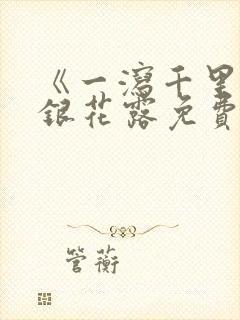 《一瀉千里
銀花露免費
管蘅